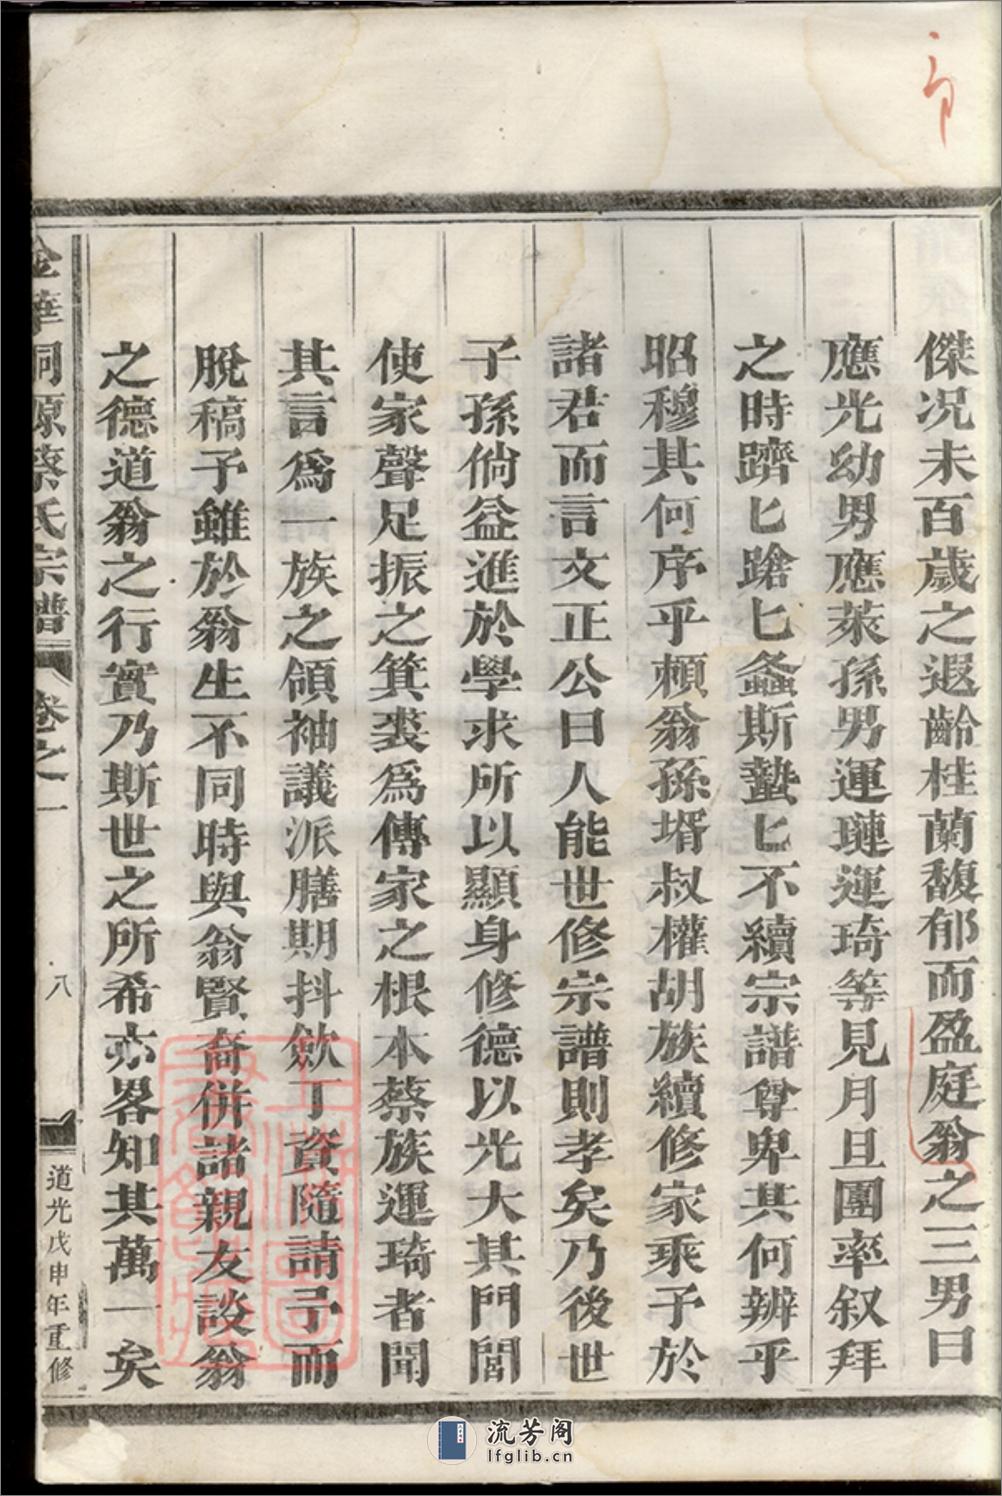 傑况未百歲之遐齡桂蘭馥郁而盈庭翁之三男曰
應光幼男應萊孫男運璉運琦等見月旦團率叙拜
之時躋匕蹌匕螽斯蟄匕不續宗譜尊卑其何辨乎
昭穆其何序乎賴翁孫壻叔權胡族續修家乘予於
諸君而言文正公曰人能世修宗譜則孝矣乃後世
子孫倘益進於學求所以顯身修德以光大其門閭
使家聲足振之箕裘爲傳家之根本蔡族運琦者聞
其言爲一族之領袖議派膳期抖歛丁資隨請予而
脫稿予雖於翁生不同時與翁賢裔併諸親友談翁
之德道翁之行實乃斯世之所希亦畧知其萬一矣
金華洞源蔡氏宗譜 卷之一 八 道光戊申年重修
流芳阁
lfglib.cn